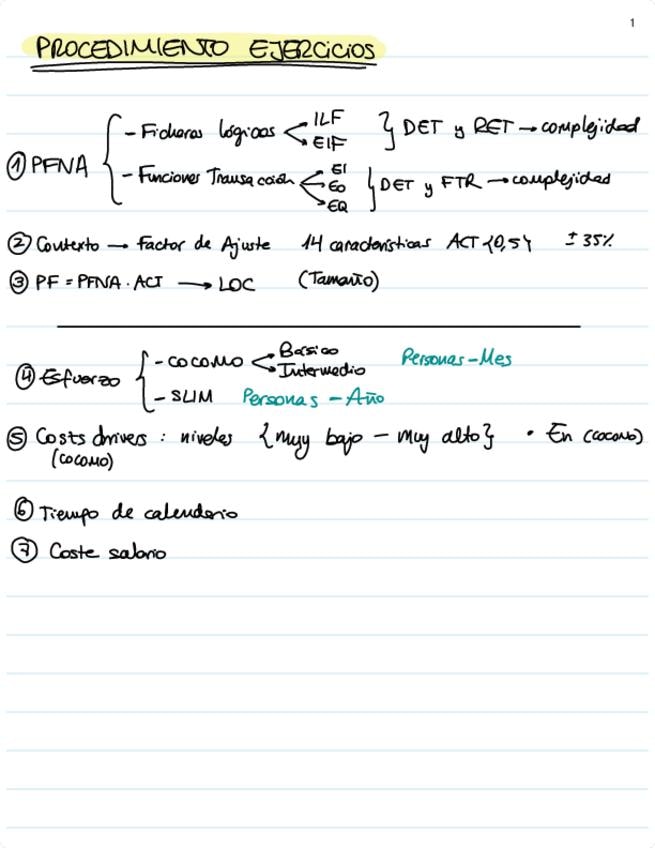 1
PROCEDIMIENTO EJERCICIOS
① PFNA { - Ficheros lógicos < ILF EIF } DET y RET → complejidad
- Funciones Transacción < EI EO EQ } DET y FTR → complejidad
② Contexto → Factor de Ajuste 14 características ACT {0,5} ± 35%
③ PF = PFNA · ACT → LOC (Tamaño)
④ Esfuerzo { - COCOMO < Básico Intermedio Personas - Mes
- SLIM Personas - Año
⑤ Costs drivers : niveles {muy bajo - muy alto} • En (COCOMO)
(COCOMO)
⑥ Tiempo de calendario
⑦ Coste salario